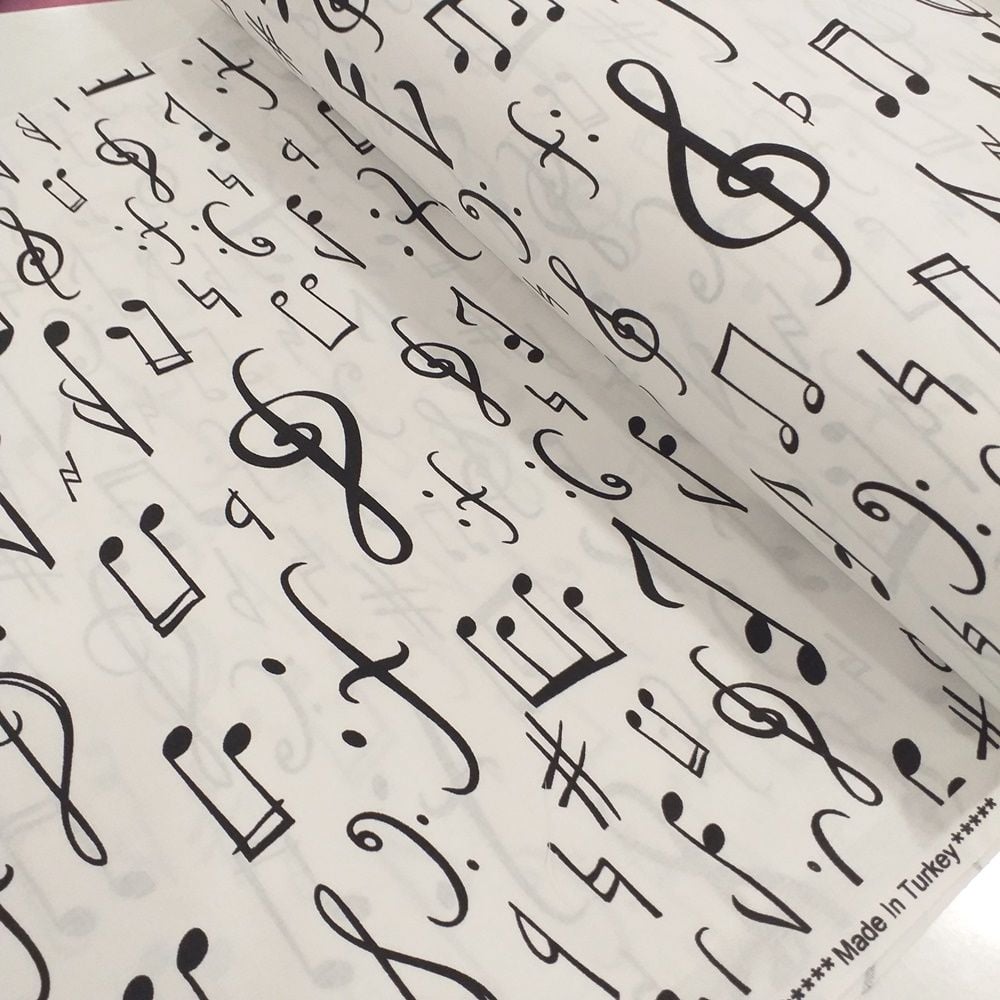 ***** Made In Turkey *****